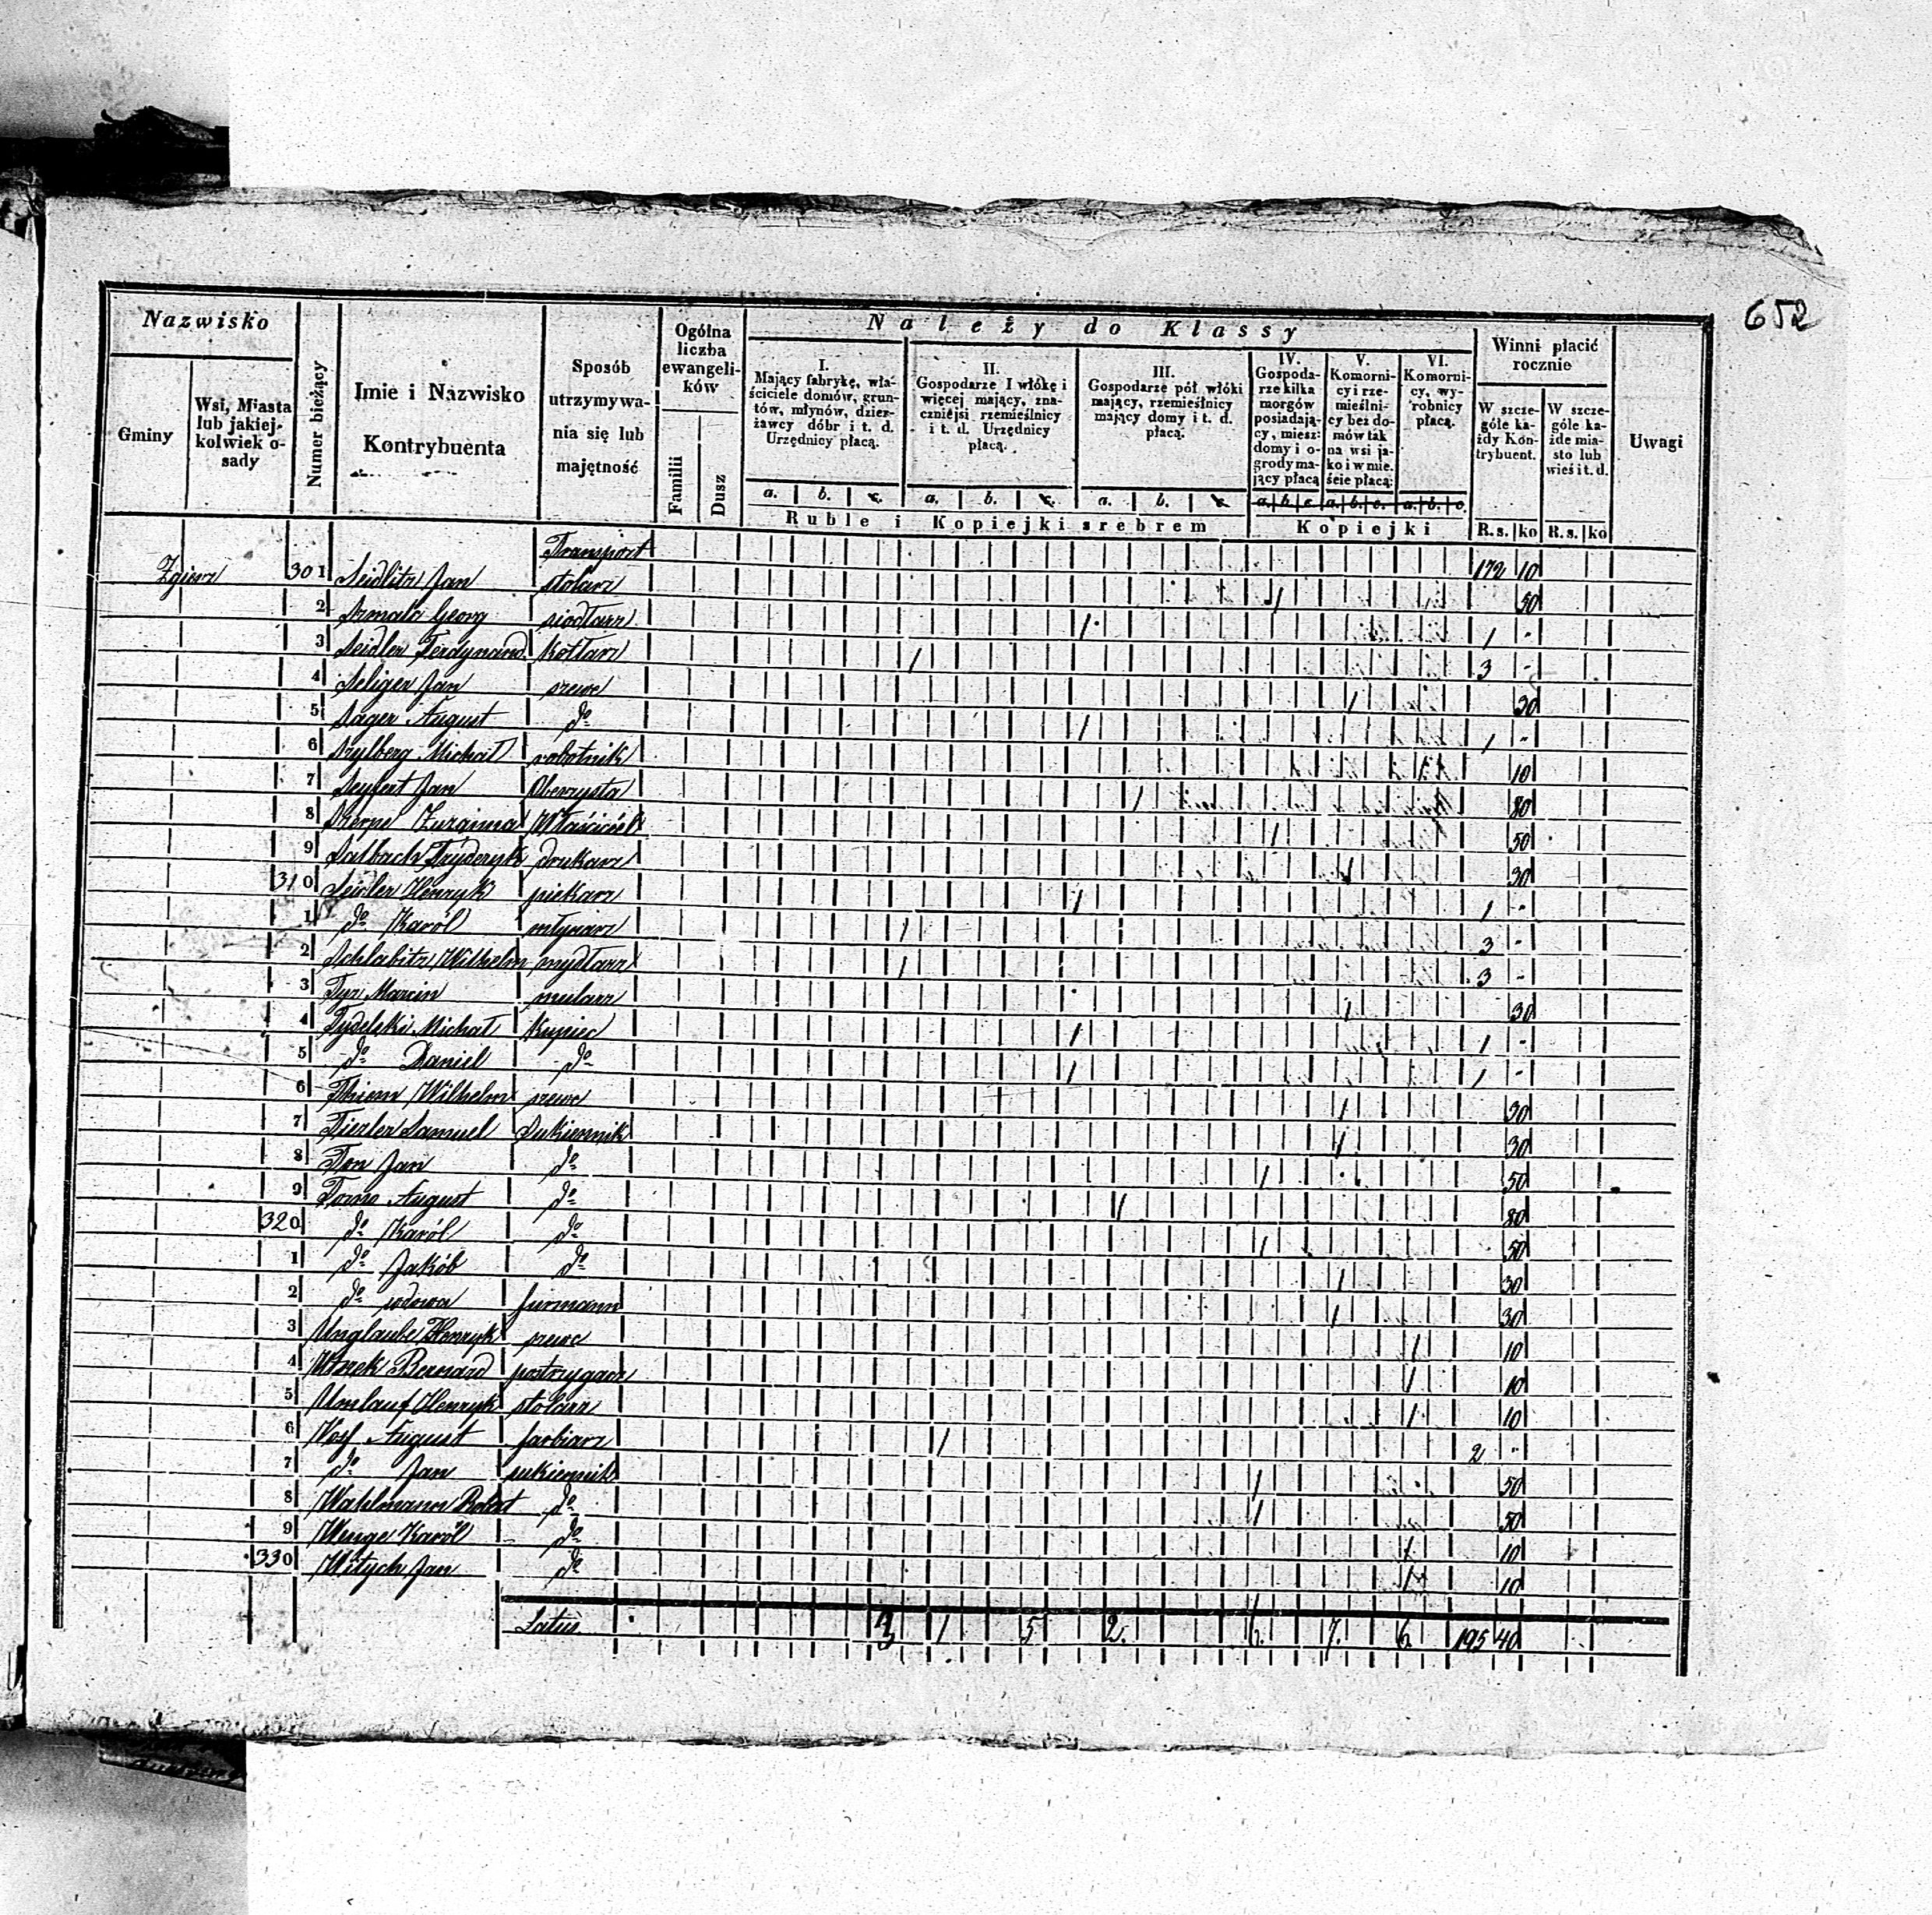 652
Nazwisko
Gminy
Wsi, Miasta lub jakiej- kolwiek o- sady
Numer bieżący
Imie i Nazwisko Kontrybuenta
Sposób utrzymywa- nia się lub majętność
Ogólna liczba ewangeli- ków
Familii
Dusz
Należy do Klassy
I. Mający fabrykę, wła- ściciele domów, grun- tów, młynów, dzier- żawcy dóbr i t. d. Urzędnicy płacą.
II. Gospodarze I włókę i więcej mający, zna- czniejsi rzemieślnicy i t. d. Urzędnicy płacą.
III. Gospodarze pół włóki mający, rzemieślnicy mający domy i t. d. płacą.
IV. Gospoda- rze kilka morgów posiadają- cy, miesz: domy i o- grody ma- jący płacą
V. Komorni- cy i rze- mieślni- cy bez do- mów tak na wsi ja- ko i w mie. ście płacą:
VI. Komorni- cy, wy- robnicy płacą.
Winni płacić rocznie
W szcze- góle ka- żdy Kon- trybuent.
W szcze- góle ka- żde mia- sto lub wieś i t. d.
Uwagi
a. b. c. a. b. c. a. b. c. a. b. c. a. b. c. a. b. c.
Ruble i Kopiejki srebrem Kopiejki R.s. ko R.s. ko
Transport 172 10
Zgierz 301 Seidlitz Jan stolarz / 50
2 Szmala Georg siodlarz / 1 -
3 Seidler Ferdynand Kotlarz / 3 -
4 Seliger Jan szewc / 30
5 Sager August do / 1 -
6 Szylberg Michał robotnik / 10
7 Seyfert Jan Oberzysta / 80
8 Właściciel / 50
9 Salbach Fryderyk drukarz / 30
310 Seidler Henryk piekarz / 1 -
1 do Karól młynarz / 3 -
2 Schlabitz Wilhelm mydlarz / 3 -
3 Tyr Marcin mularz / 30
4 Tydelski Michał Kupiec / 1 -
5 do Daniel do / 1 -
6 Thiem Wilhelm szewc / 30
7 Tiezler Samuel Sukiennik / 30
8 Ton Jan do / 50
9 August do / 80
320 do Karól do / 50
1 do Jakób do / 30
2 do wdowa furmann / 30
3 Unglaube Henryk szewc / 10
4 Bernard postrzygacz / 10
5 Umlauf Henryk stolarz / 10
6 Voss August farbiarz / 2 -
7 do Jan sukiennik / 50
8 Wahlmann Robert do / 50
9 Wenge Karól do / 10
330 Witych Jan do / 10
Latus 3 1 5 2. 6. 7. 6. 195 40